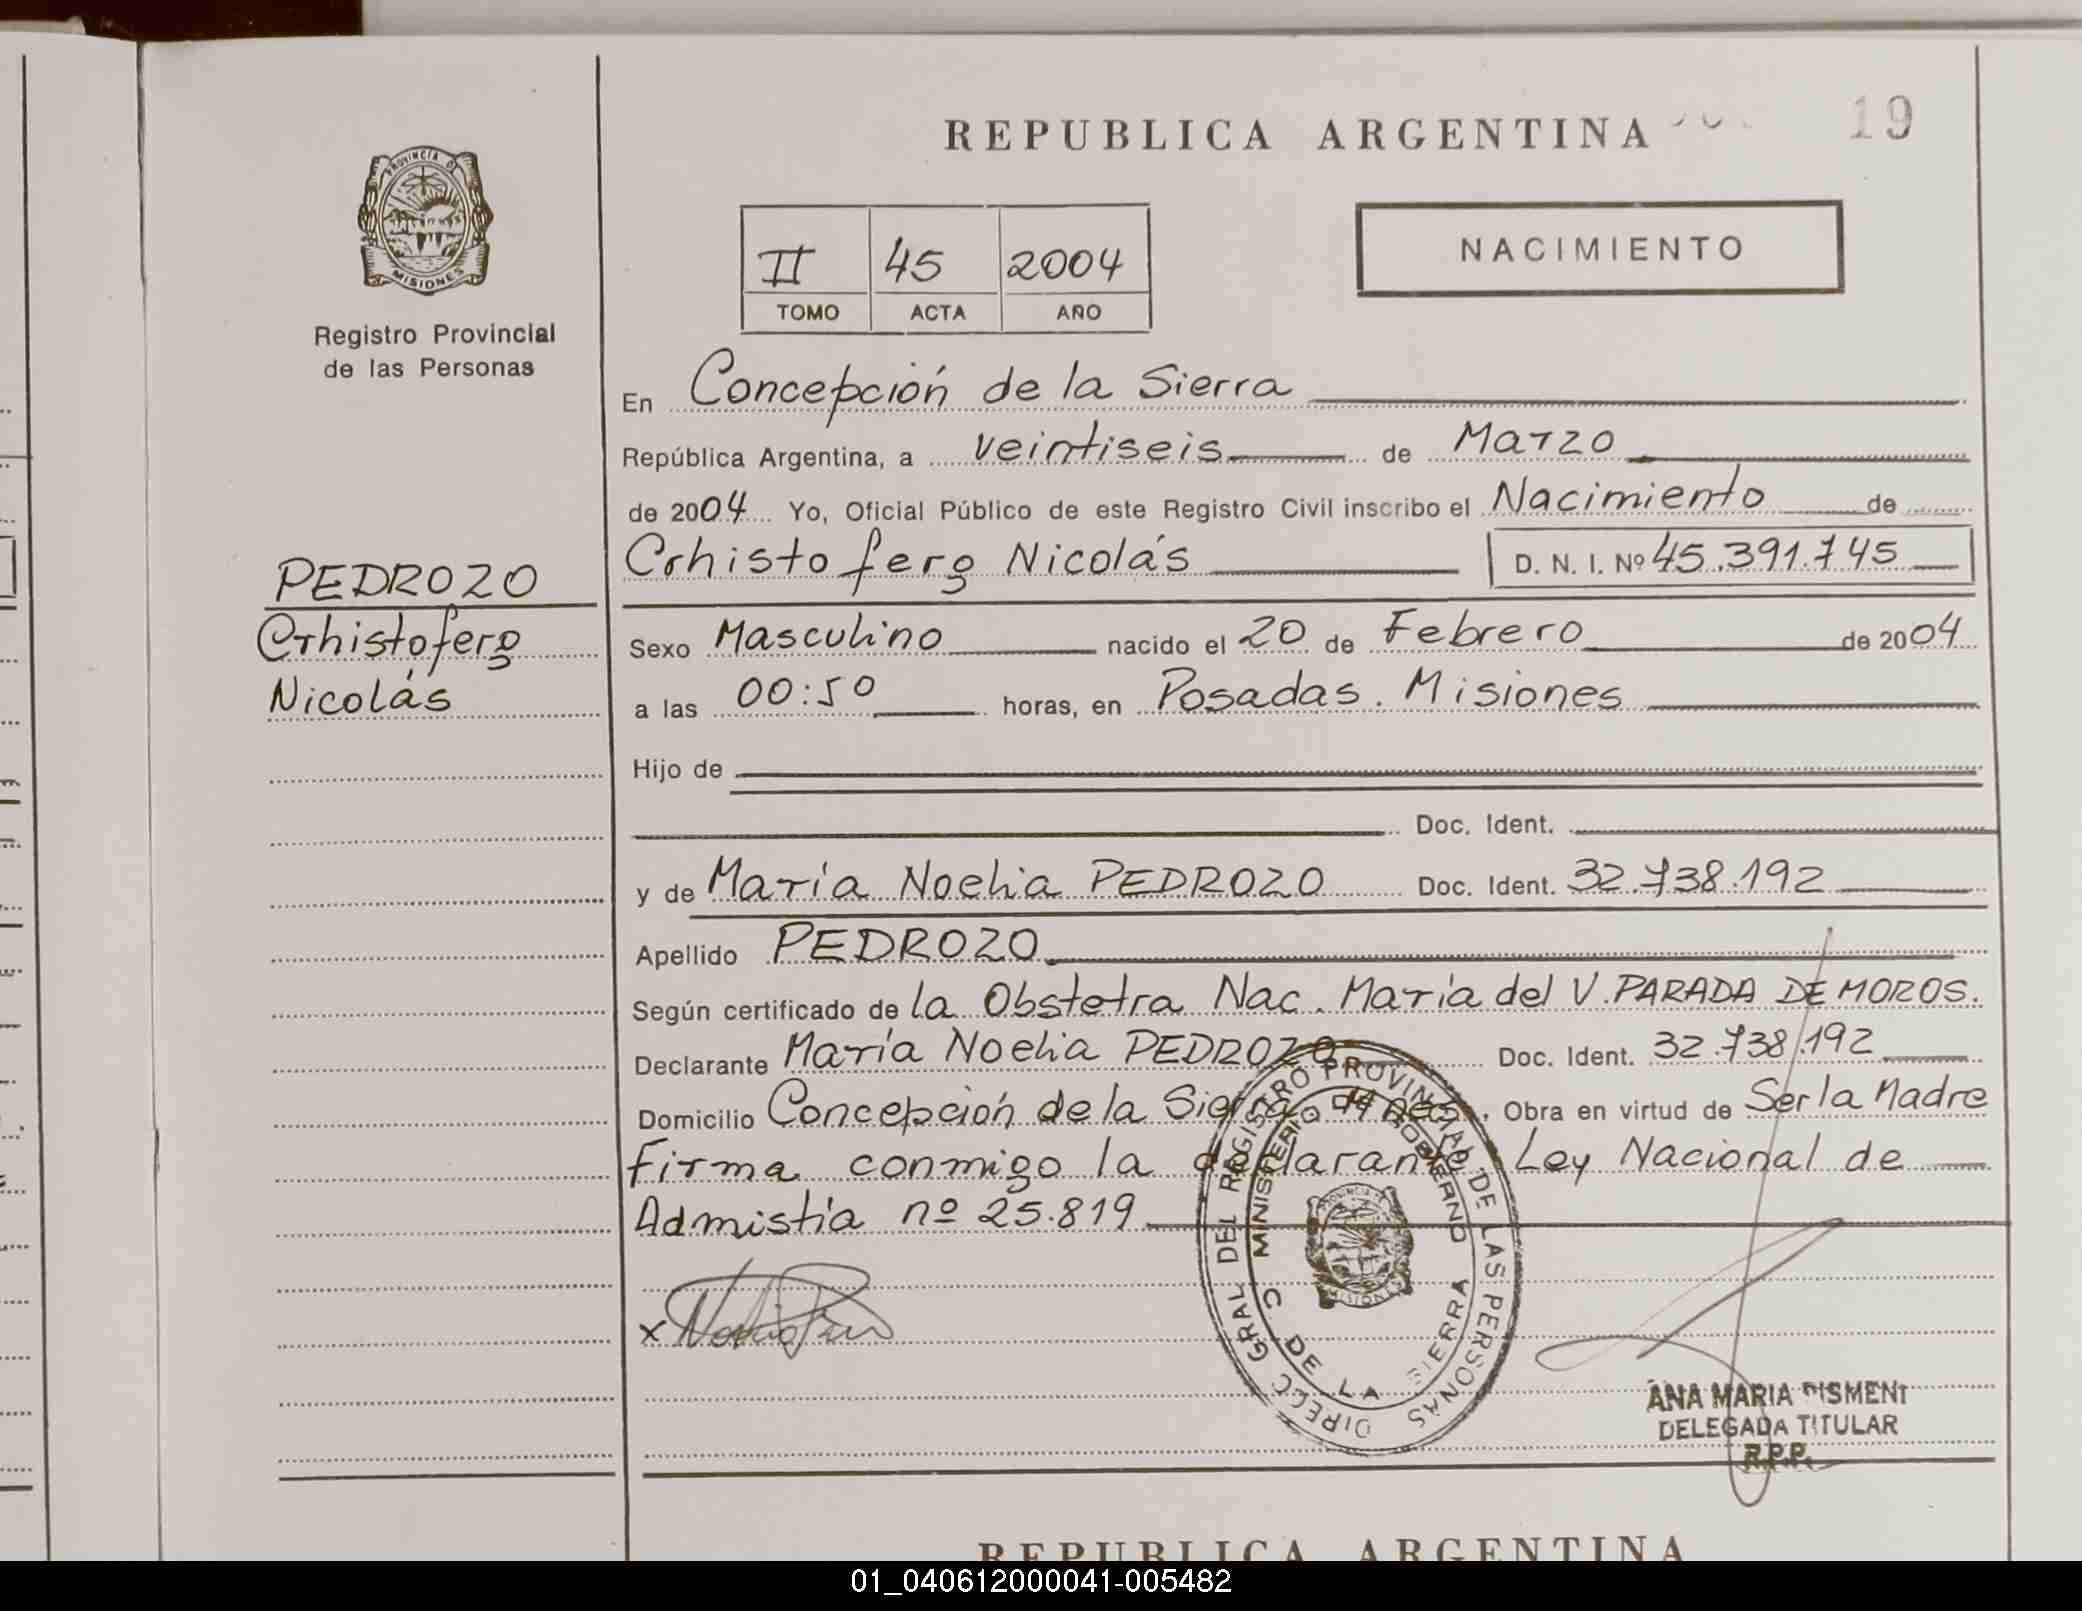 REPUBLICA ARGENTINA
19
PROVINCIA DE
MISIONES
Registro Provincial
de las Personas
II 45 2004
TOMO ACTA AÑO
NACIMIENTO
En Concepción de la Sierra
República Argentina, a veintiseis de Marzo
de 2004 Yo, Oficial Público de este Registro Civil inscribo el Nacimiento de
Crhistoferg Nicolás D. N. I. Nº 45.391.745
PEDROZO
Crhistoferg
Nicolás
Sexo Masculino nacido el 20 de Febrero de 2004
a las 00:50 horas, en Posadas. Misiones
Hijo de
Doc. Ident.
y de María Noelia PEDROZO Doc. Ident. 32.738.192
Apellido PEDROZO
Según certificado de la Obstetra Nac. María del V. PARADA DE MOROS.
Declarante María Noelia PEDROZO Doc. Ident. 32.738.192
Domicilio Concepción de la Sierra. Obra en virtud de Ser la Madre
Firma conmigo la declarante Ley Nacional de
Admistía nº 25.819
DIREC. GRAL DEL REGISTRO PROVINCIAL DE LAS PERSONAS
MINISTERIO DE GOBIERNO
C DE LA SIERRA
MISIONES
x
ANA MARIA PISMENI
DELEGADA TITULAR
R.P.P.
REPUBLICA ARGENTINA
01_040612000041-005482